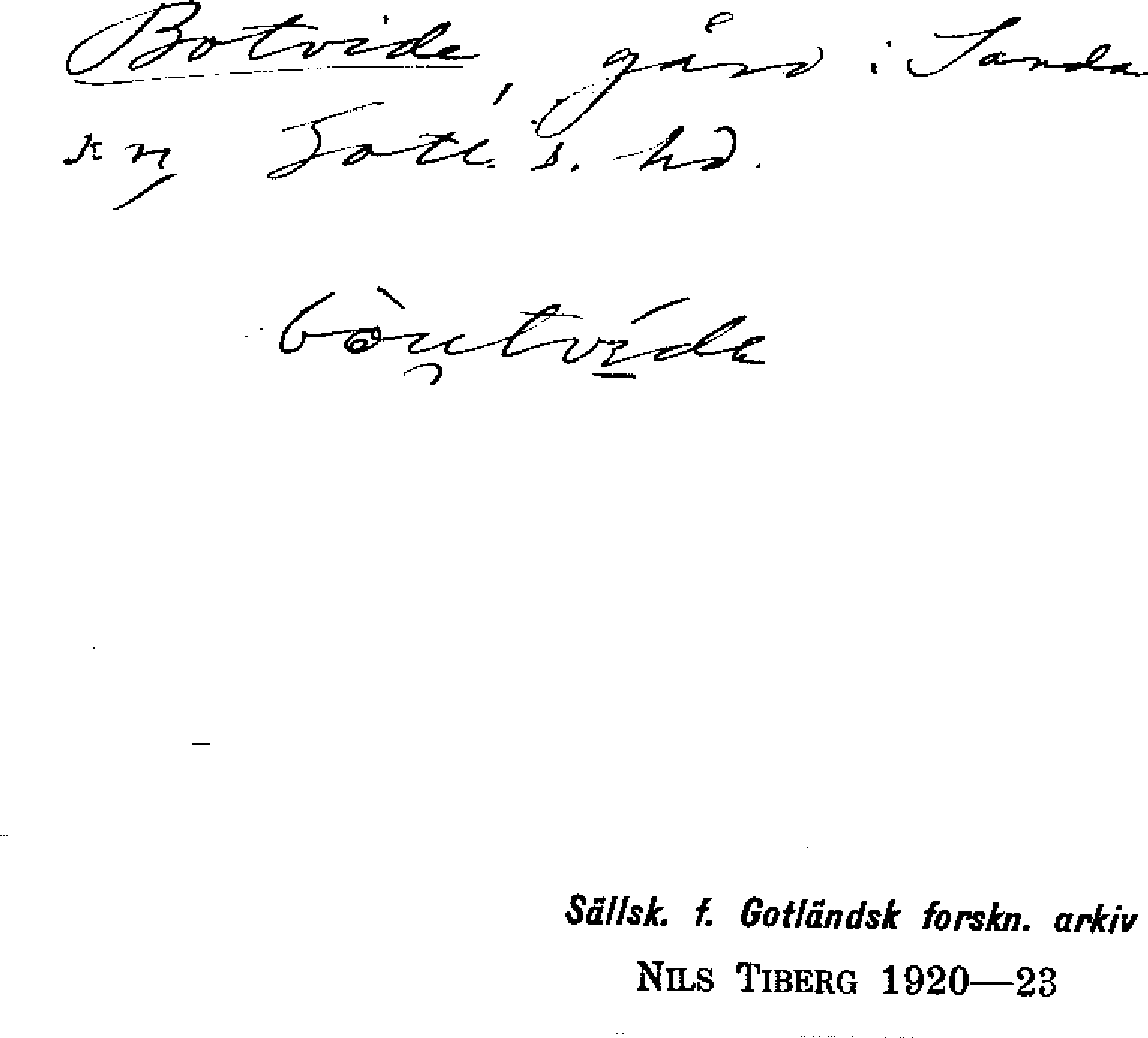 Botvide, gård i Sanda
sn, Gotl. s. hd.
bòu̯tvı́de
Sällsk. f. Gotländsk forskn. arkiv
NILS TIBERG 1920—23